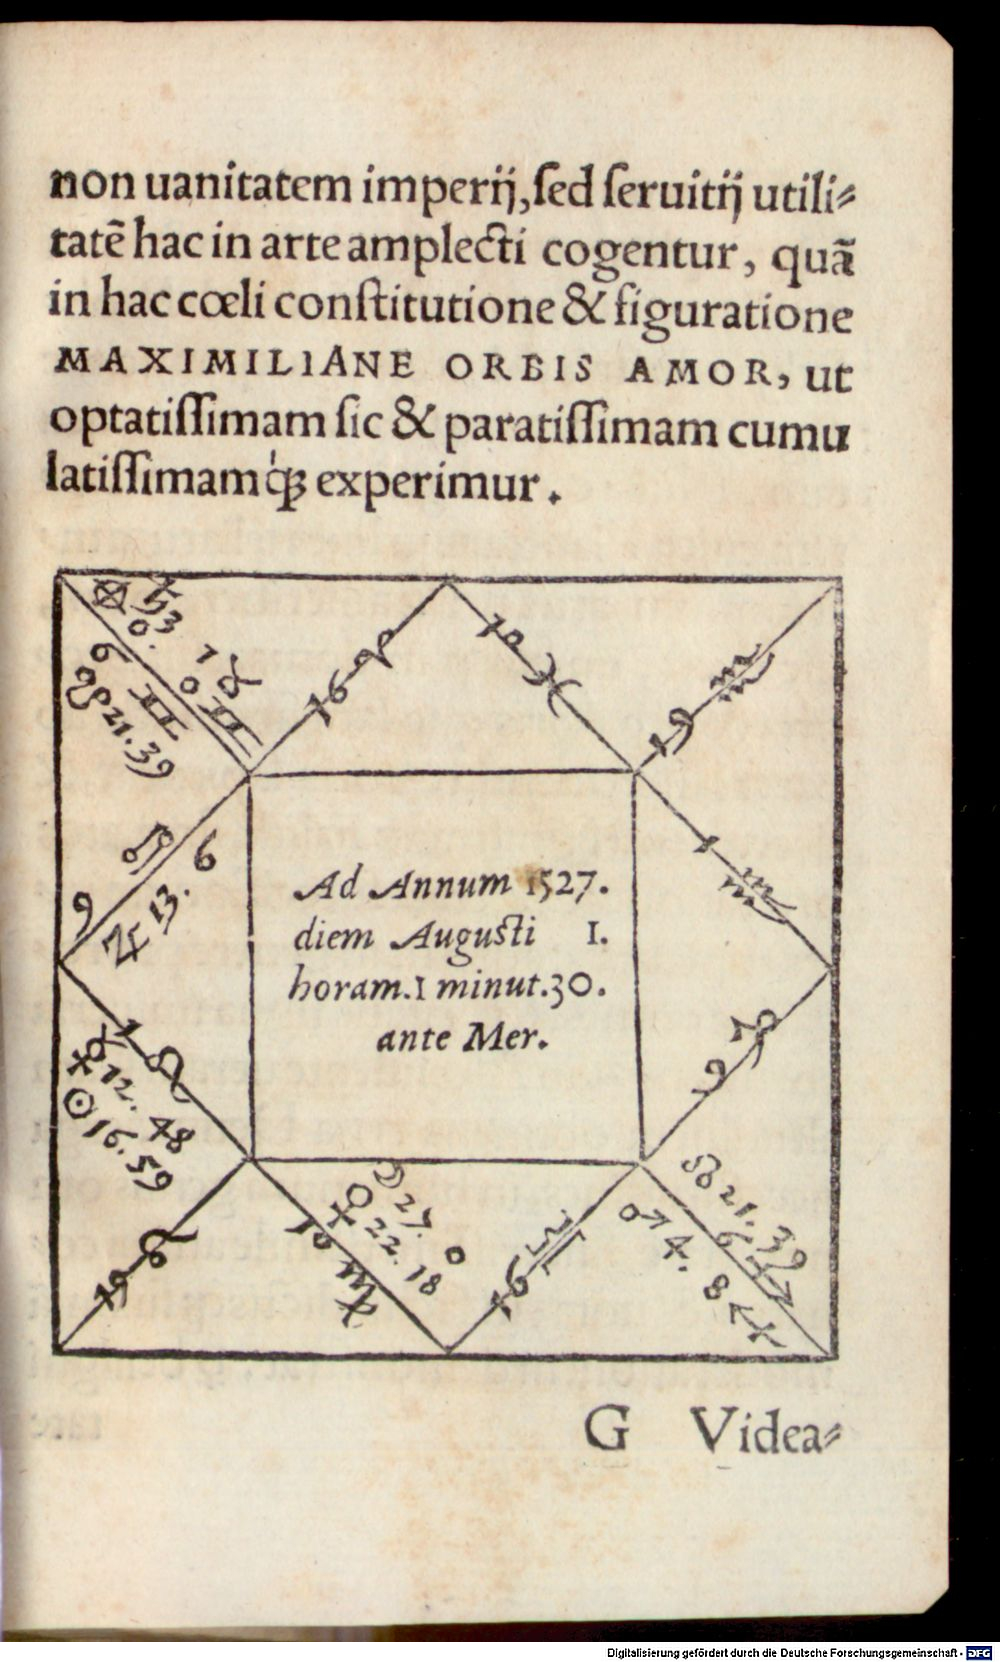 non uanitatem imperij, sed seruitij utili⸗
tatē hac in arte amplecti cogentur, quā
in hac cœli constitutione & figuratione
MAXIMILIANE ORBIS AMOR, ut
optatissimam sic & paratissimam cumu
latissimamq́ꝫ experimur.
⊗ ♄ 3
0.
1 ♉
0 ♊
6 ♊
21. 39
16
♓
♌
6
9
♃ 13.
Ad Annum 1527.
diem Augusti 1.
horam. 1 minut. 30.
ante Mer.
☿ 12. 48
☉ 16. 59
☽ 27. 0
♀ 22. 18
♍
☊ 21. 39
♂ 4. 8
6 ♐
G Videa⸗
Digitalisierung gefördert durch die Deutsche Forschungsgemeinschaft - DFG